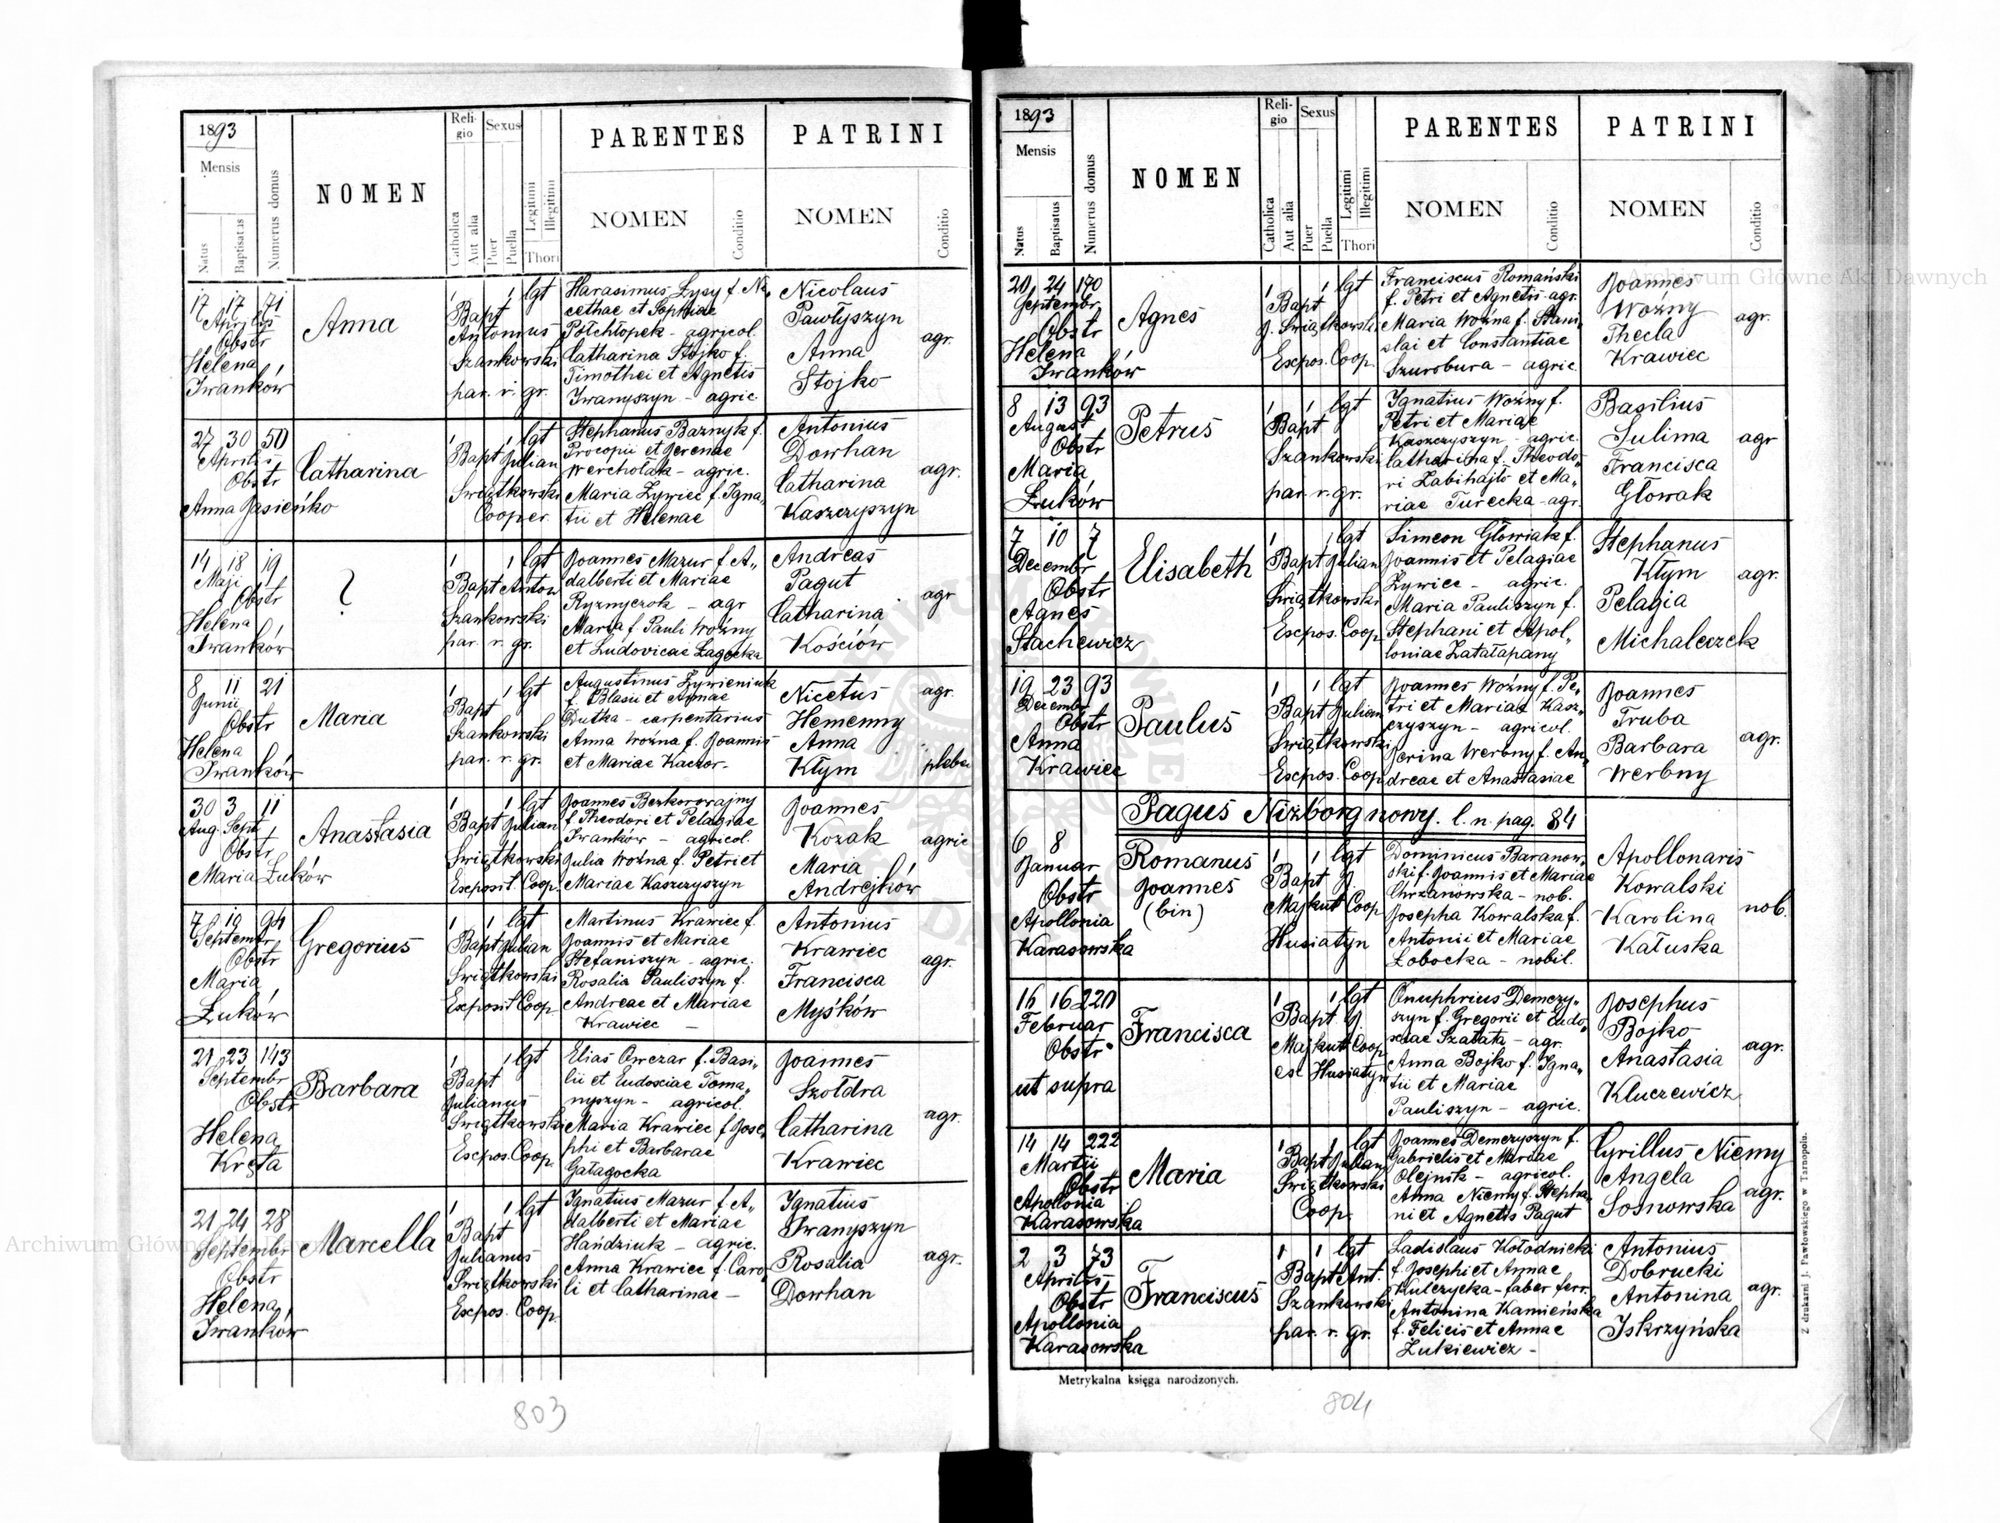 1893
Mensis
Natus
Baptisatus
Numerus domus
NOMEN
Religio
Catholica
Aut alia
Sexus
Puer
Puella
Legitimi
Illegitimi
Thori
PARENTES
NOMEN
Conditio
PATRINI
NOMEN
Conditio
17 17 71
Aprilis
Obstr
Helena
Iwanków
Anna
1 1 lgt
Bapt
Antonius
Szankowski
par. r. gr.
Harasimus Łysy f. Ni„
cethae et Sophiae
Półchłopek - agricol.
Catharina Stojko f.
Timothei et Agnetis
Iwanyszyn - agric.
Nicolaus
Pawłyszyn
Anna
Stojko
agr.
27 30 50
Aprilis
Obstr
Anna Jasieńko
Catharina
1 1 lgt
Bapt Julian
Swiątkowski
Cooper.
Stephanus Baznyk f.
Procopii et Jerenae
Wercholak - agric.
Maria Żywiec f. Igna„
tii et Helenae
Antonius
Dowhan
Catharina
Kaszczyszyn
agr.
14 18 19
Maji
Obstr
Helena
Iwanków
?
1 1 lgt
Bapt Anton
Szankowski
par. r. gr.
Joannes Mazur f. A„
dalberti et Mariae
Ryzmyczok - agr
Maria f. Pauli Woźny
et Ludovicae Zagocka
Andreas
Pagut
Catharina
Kościów
agr
8 11 21
Junii
Obstr
Helena
Iwanków
Maria
1 1 lgt
Bapt
Szankowski
par. r. gr.
Augustinus Żywieniuk
f. Blasii et Annae
Dutka - carpentarius
Anna Woźna f. Joannis
et Mariae Kaczor.
Nicetus
Hemenny
Anna
Kłym
agr.
plebe
30 3 11
Aug. Sept
Obstr
Maria Łuków
Anastasia
1 1 lgt
Bapt Julian
Swiątkowski
Exposit. Coop.
Joannes Bezkorowajny
f. Theodori et Pelagiae
Iwanków - agricol.
Julia Woźna f. Petri et
Mariae Kaszczyszyn
Joannes
Kozak
Maria
Andrejków
agric
7 10 94
Septembr
Obstr
Maria
Łuków
Gregorius
1 1 lgt
Bapt Julian
Swiątkowski
Exposit Coop.
Martinus Krawiec f.
Joannis et Mariae
Stefaniszyn - agric.
Rosalia Pauliszyn f.
Andreae et Mariae
Krawiec -
Antonius
Krawiec
Francisca
Myśków
agr.
21 23 143
Septembr
Obstr
Helena
Kręta
Barbara
1 1 lgt
Bapt
Julianus
Swiątkowski
Expos. Coop.
Elias Owczar f. Basi„
lii et Eudoxiae Toma„
nyszyn - agricol.
Maria Krawiec f. Jose„
phi et Barbarae
Gałagocka
Joannes
Szołdra
Catharina
Krawiec
agr.
21 24 28
Septembr
Obstr
Helena
Iwanków
Marcella
1 1 lgt
Bapt
Julianus
Swiątkowski
Expos. Coop.
Ignatius Mazur f. A„
dalberti et Mariae
Hańdziuk - agric.
Anna Krawiec f. Caro„
li et Catharinae -
Ignatius
Iwanyszyn
Rosalia
Dowhan
agr.
803
1893
Mensis
Natus
Baptisatus
Numerus domus
NOMEN
Religio
Catholica
Aut alia
Sexus
Puer
Puella
Legitimi
Illegitimi
Thori
PARENTES
NOMEN
Conditio
PATRINI
NOMEN
Conditio
20 24 170
Septembr.
Obstr
Helena
Iwanków
Agnes
1 1 lgt
Bapt
J. Swiątkowski
Expos. Coop.
Franciscus Romański
f. Petri et Agnetis - agr.
Maria Woźna f. Stani„
slai et Constantiae
Szurobura - agric.
Joannes
Woźny
Thecla
Krawiec
agr.
8 13 93
August
Obstr
Maria
Łuków
Petrus
1 1 lgt
Bapt
Szankowski
par. r. gr.
Ignatius Woźny f.
Petri et Mariae
Kaszczyszyn - agric.
Catharina f. Theodo„
ri Zabihajło et Ma„
riae Turecka - agr.
Basilius
Sulima
Francisca
Głowak
agr
7 10 7
Decembr
Obstr
Agnes
Stachewicz
Elisabeth
1 1 lgt
Bapt Julian
Swiątkowski
Expos. Coop.
Simeon Głowiak f.
Joannis et Pelagiae
Żywiec - agric.
Maria Pauliszyn f.
Stephani et Apol„
loniae Załatapany
Stephanus
Kłym
Pelagia
Michaleczek
agr.
19 23 93
Decembr
Obstr
Anna
Krawiec
Paulus
1 1 lgt
Bapt Julian
Swiątkowski
Expos. Coop
Joannes Woźny f. Pe„
tri et Mariae Kasz„
czyszyn - agricol.
Jerina Werbny f. An„
dreae et Anastasiae
Joannes
Truba
Barbara
Werbny
agr.
Pagus Niżborg nowy. l. n. pag. 84
6 8
Januar
Obstr
Apollonia
Karasowska
Romanus
Joannes
(bin)
1 1 lgt
Bapt J.
Majkut Coop
Husiatyn
Dominicus Baranow„
ski f. Joannis et Mariae
Chrzanowska - nob.
Josepha Kowalska f.
Antonii et Mariae
Łobocka - nobil.
Apollonaris
Kowalski
Karolina
Kałuska
nob.
16 16 220
Februar
Obstr
ut supra
Francisca
1 1 lgt
Bapt J.
Majkut Coop
ex Husiatyn
Onuphrius Demczy„
szyn f. Gregorii et Eudo„
xiae Szałata - agr.
Anna Bojko f. Igna„
tii et Mariae
Pauliszyn - agric.
Josephus
Bojko
Anastasia
Kluczewicz
agr.
14 14 222
Martii
Obstr
Apollonia
Karasowska
Maria
1 1 lgt
Bapt Julian
Swiątkowski
Coop.
Joannes Demczyszyn f.
Gabrielis et Mariae
Olejnik - agricol.
Anna Niemy f. Stepha„
ni et Agnetis Pagut
Cyrillus Niemy
Angela
Sosnowska
agr.
2 3 73
Aprilis
Obstr
Apollonia
Karasowska
Franciscus
1 1 lgt
Bapt Ant.
Szankowski
par. r. gr.
Ladislaus Kołodnicki
f. Josephi et Annae
Kulczycka - faber ferr.
Antonina Kamieńska
f. Felicis et Annae
Łukiewicz -
Antonius
Dobrucki
Antonina
Iskrzyńska
agr.
Metrykalna księga narodzonych.
Z drukarni J. Pawłowskiego w Tarnopolu.
804
Archiwum Główne Akt Dawnych
Archiwum Główne Akt Dawnych